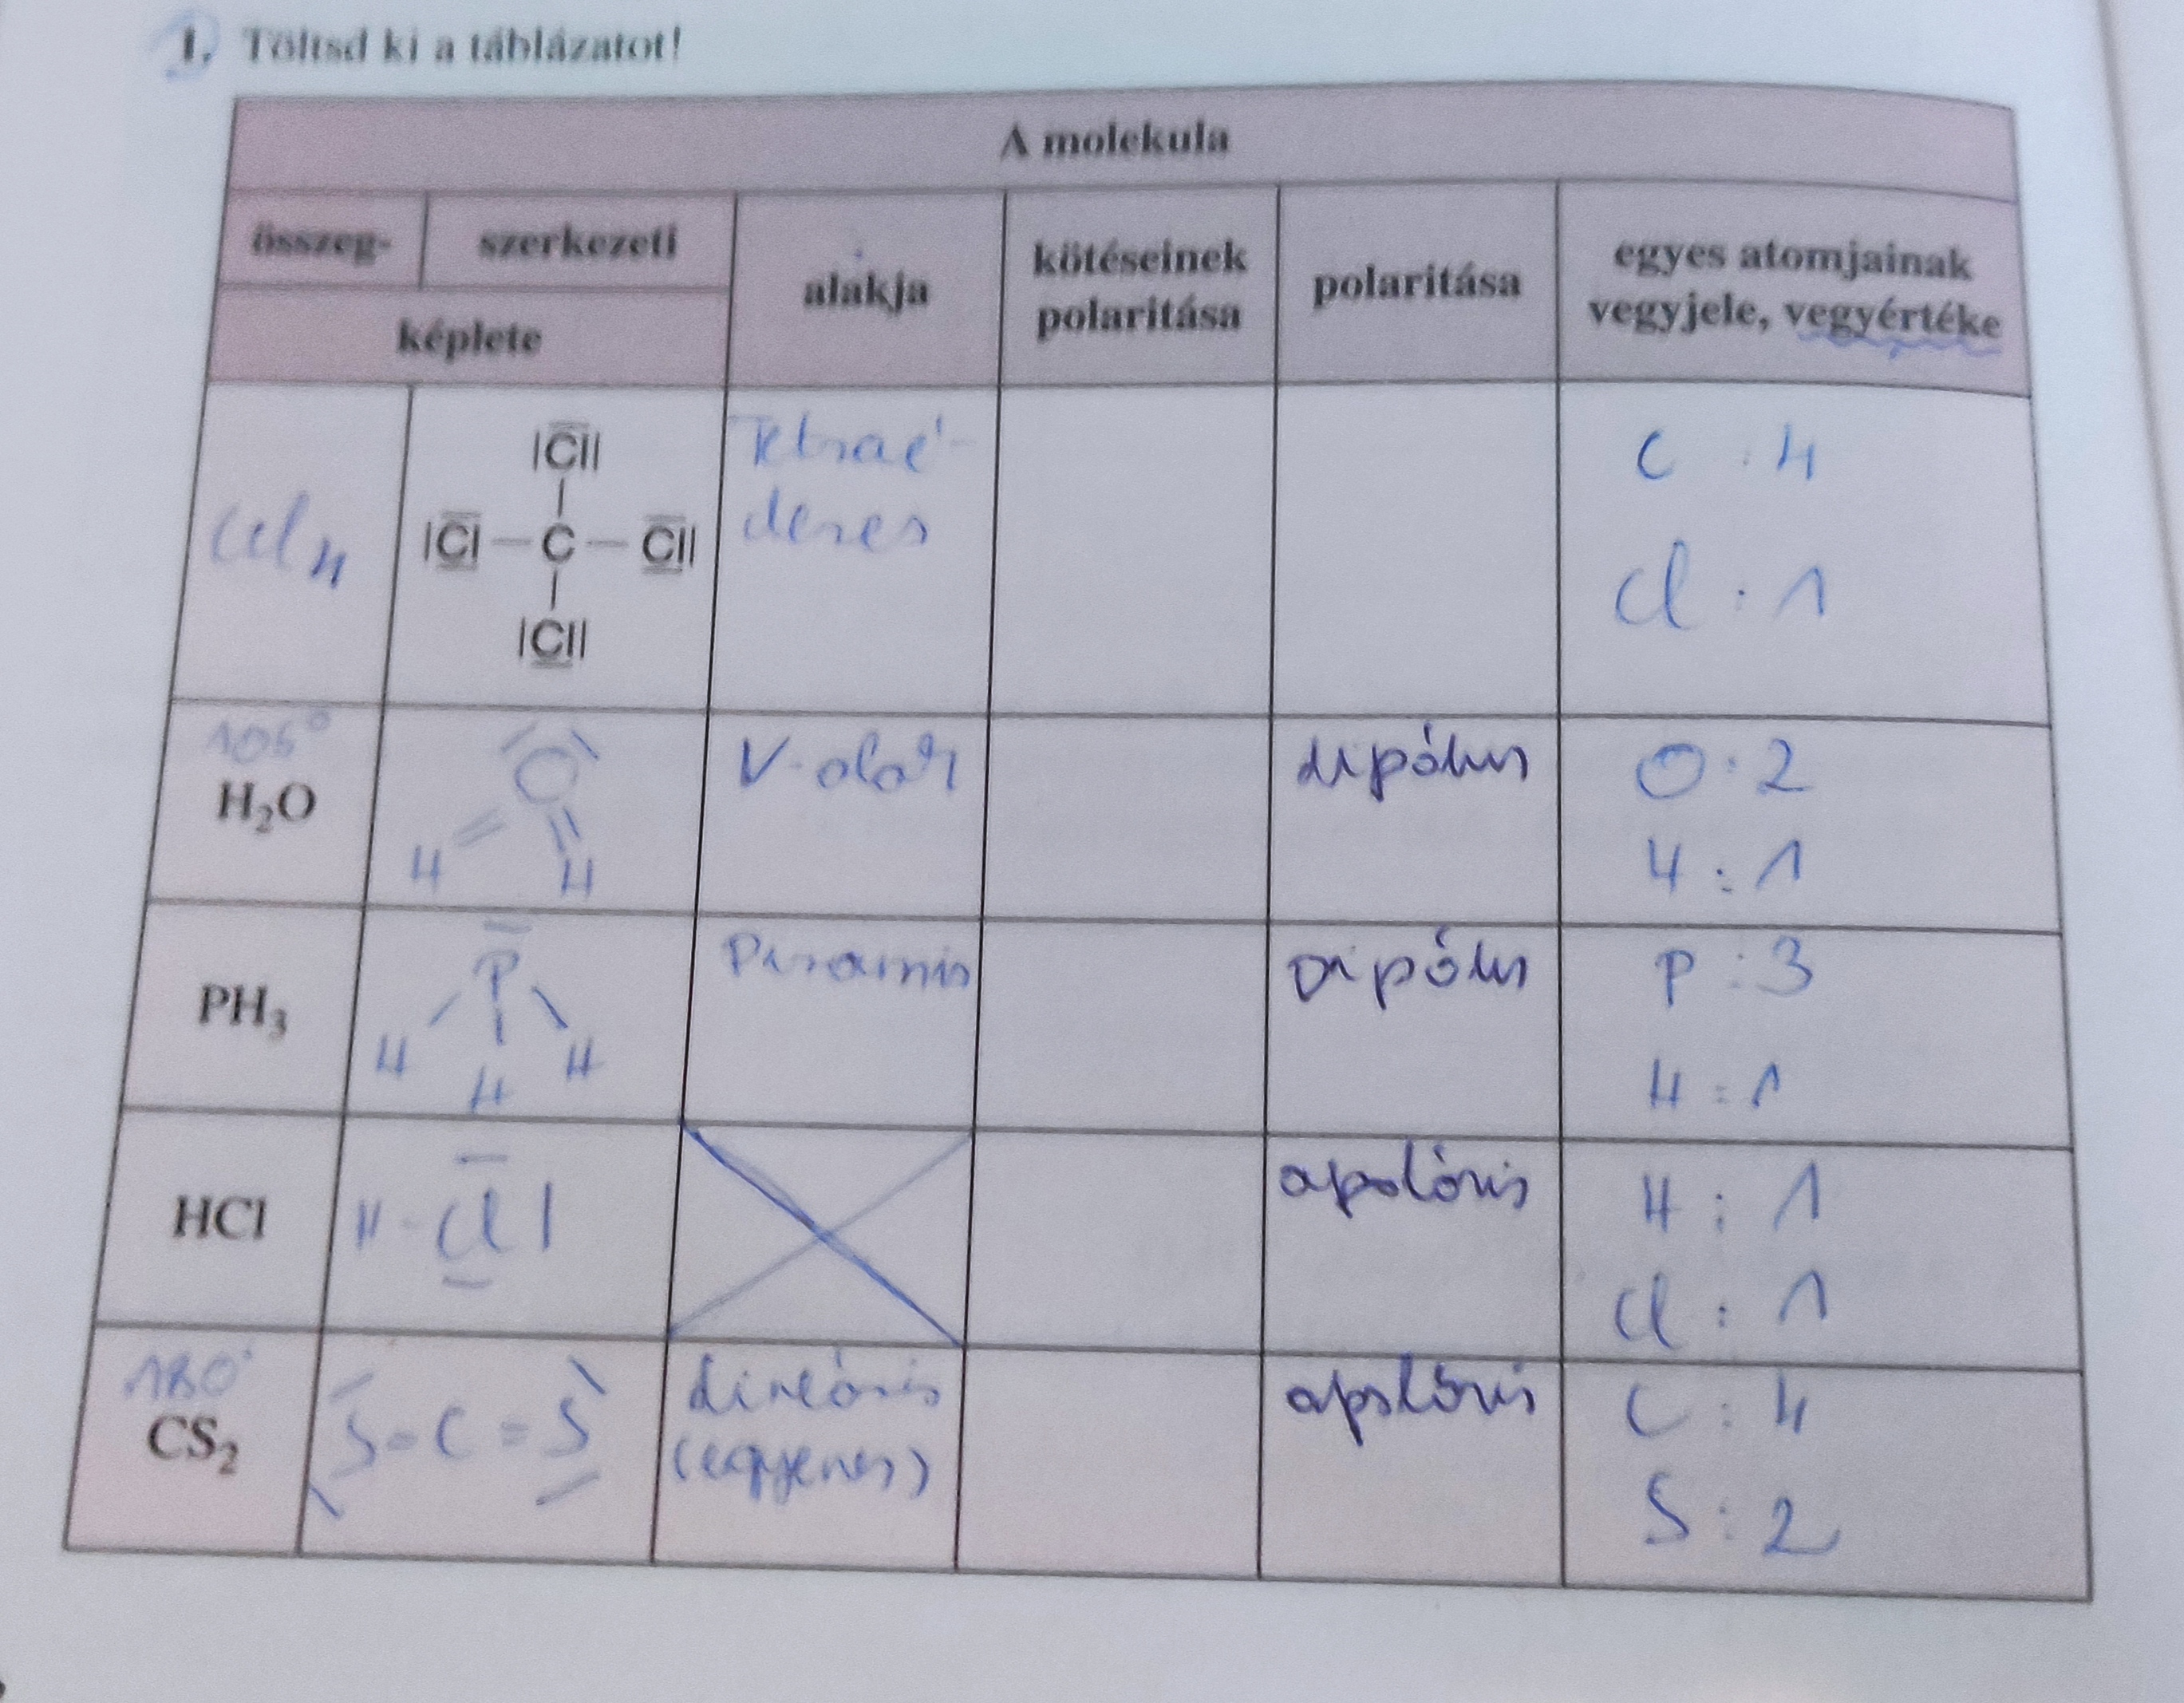 1. Töltsd ki a táblázatot!
A molekula
összeg-
szerkezeti
képlete
alakja
kötéseinek
polaritása
polaritása
egyes atomjainak
vegyjele, vegyértéke
CCl4
|Cl|
|Cl — C — Cl|
|Cl|
Tetraé-
deres
C : 4
Cl : 1
105°
H₂O
O
H H
V-alak
dipólus
O : 2
H : 1
PH₃
P
H H H
Piramis
Dipólus
P : 3
H : 1
HCl
H - Cl |
apoláris
H : 1
Cl : 1
180°
CS₂
S = C = S
lineáris
(egyenes)
apoláris
C : 4
S : 2